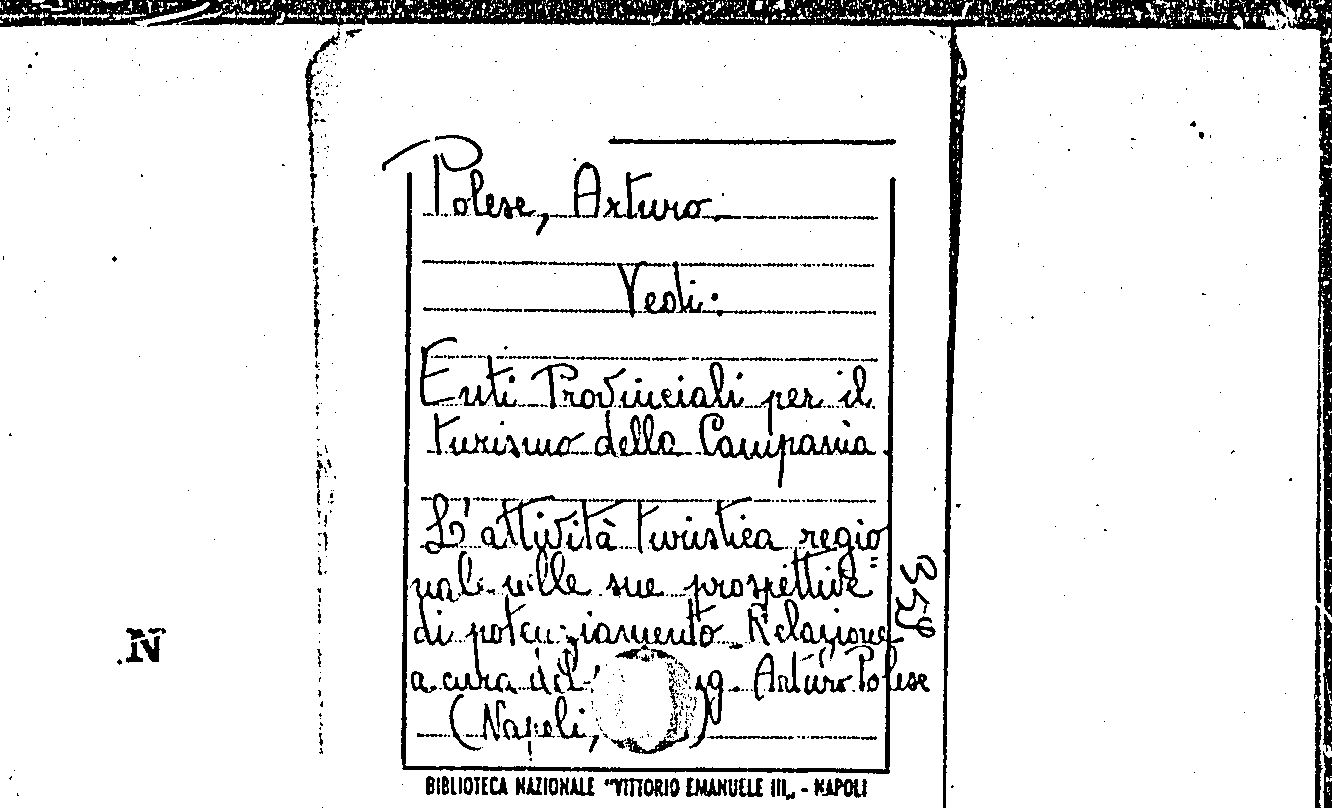 Polese, Arturo.
Vedi:
Enti Provinciali per il
turismo della Campania.
L'attività turistica regio=
nale nelle sue prospettive
di potenziamento. Relazione
a cura del Arturo Polese
(Napoli, )
359
N
BIBLIOTECA NAZIONALE "VITTORIO EMANUELE III„ - NAPOLI